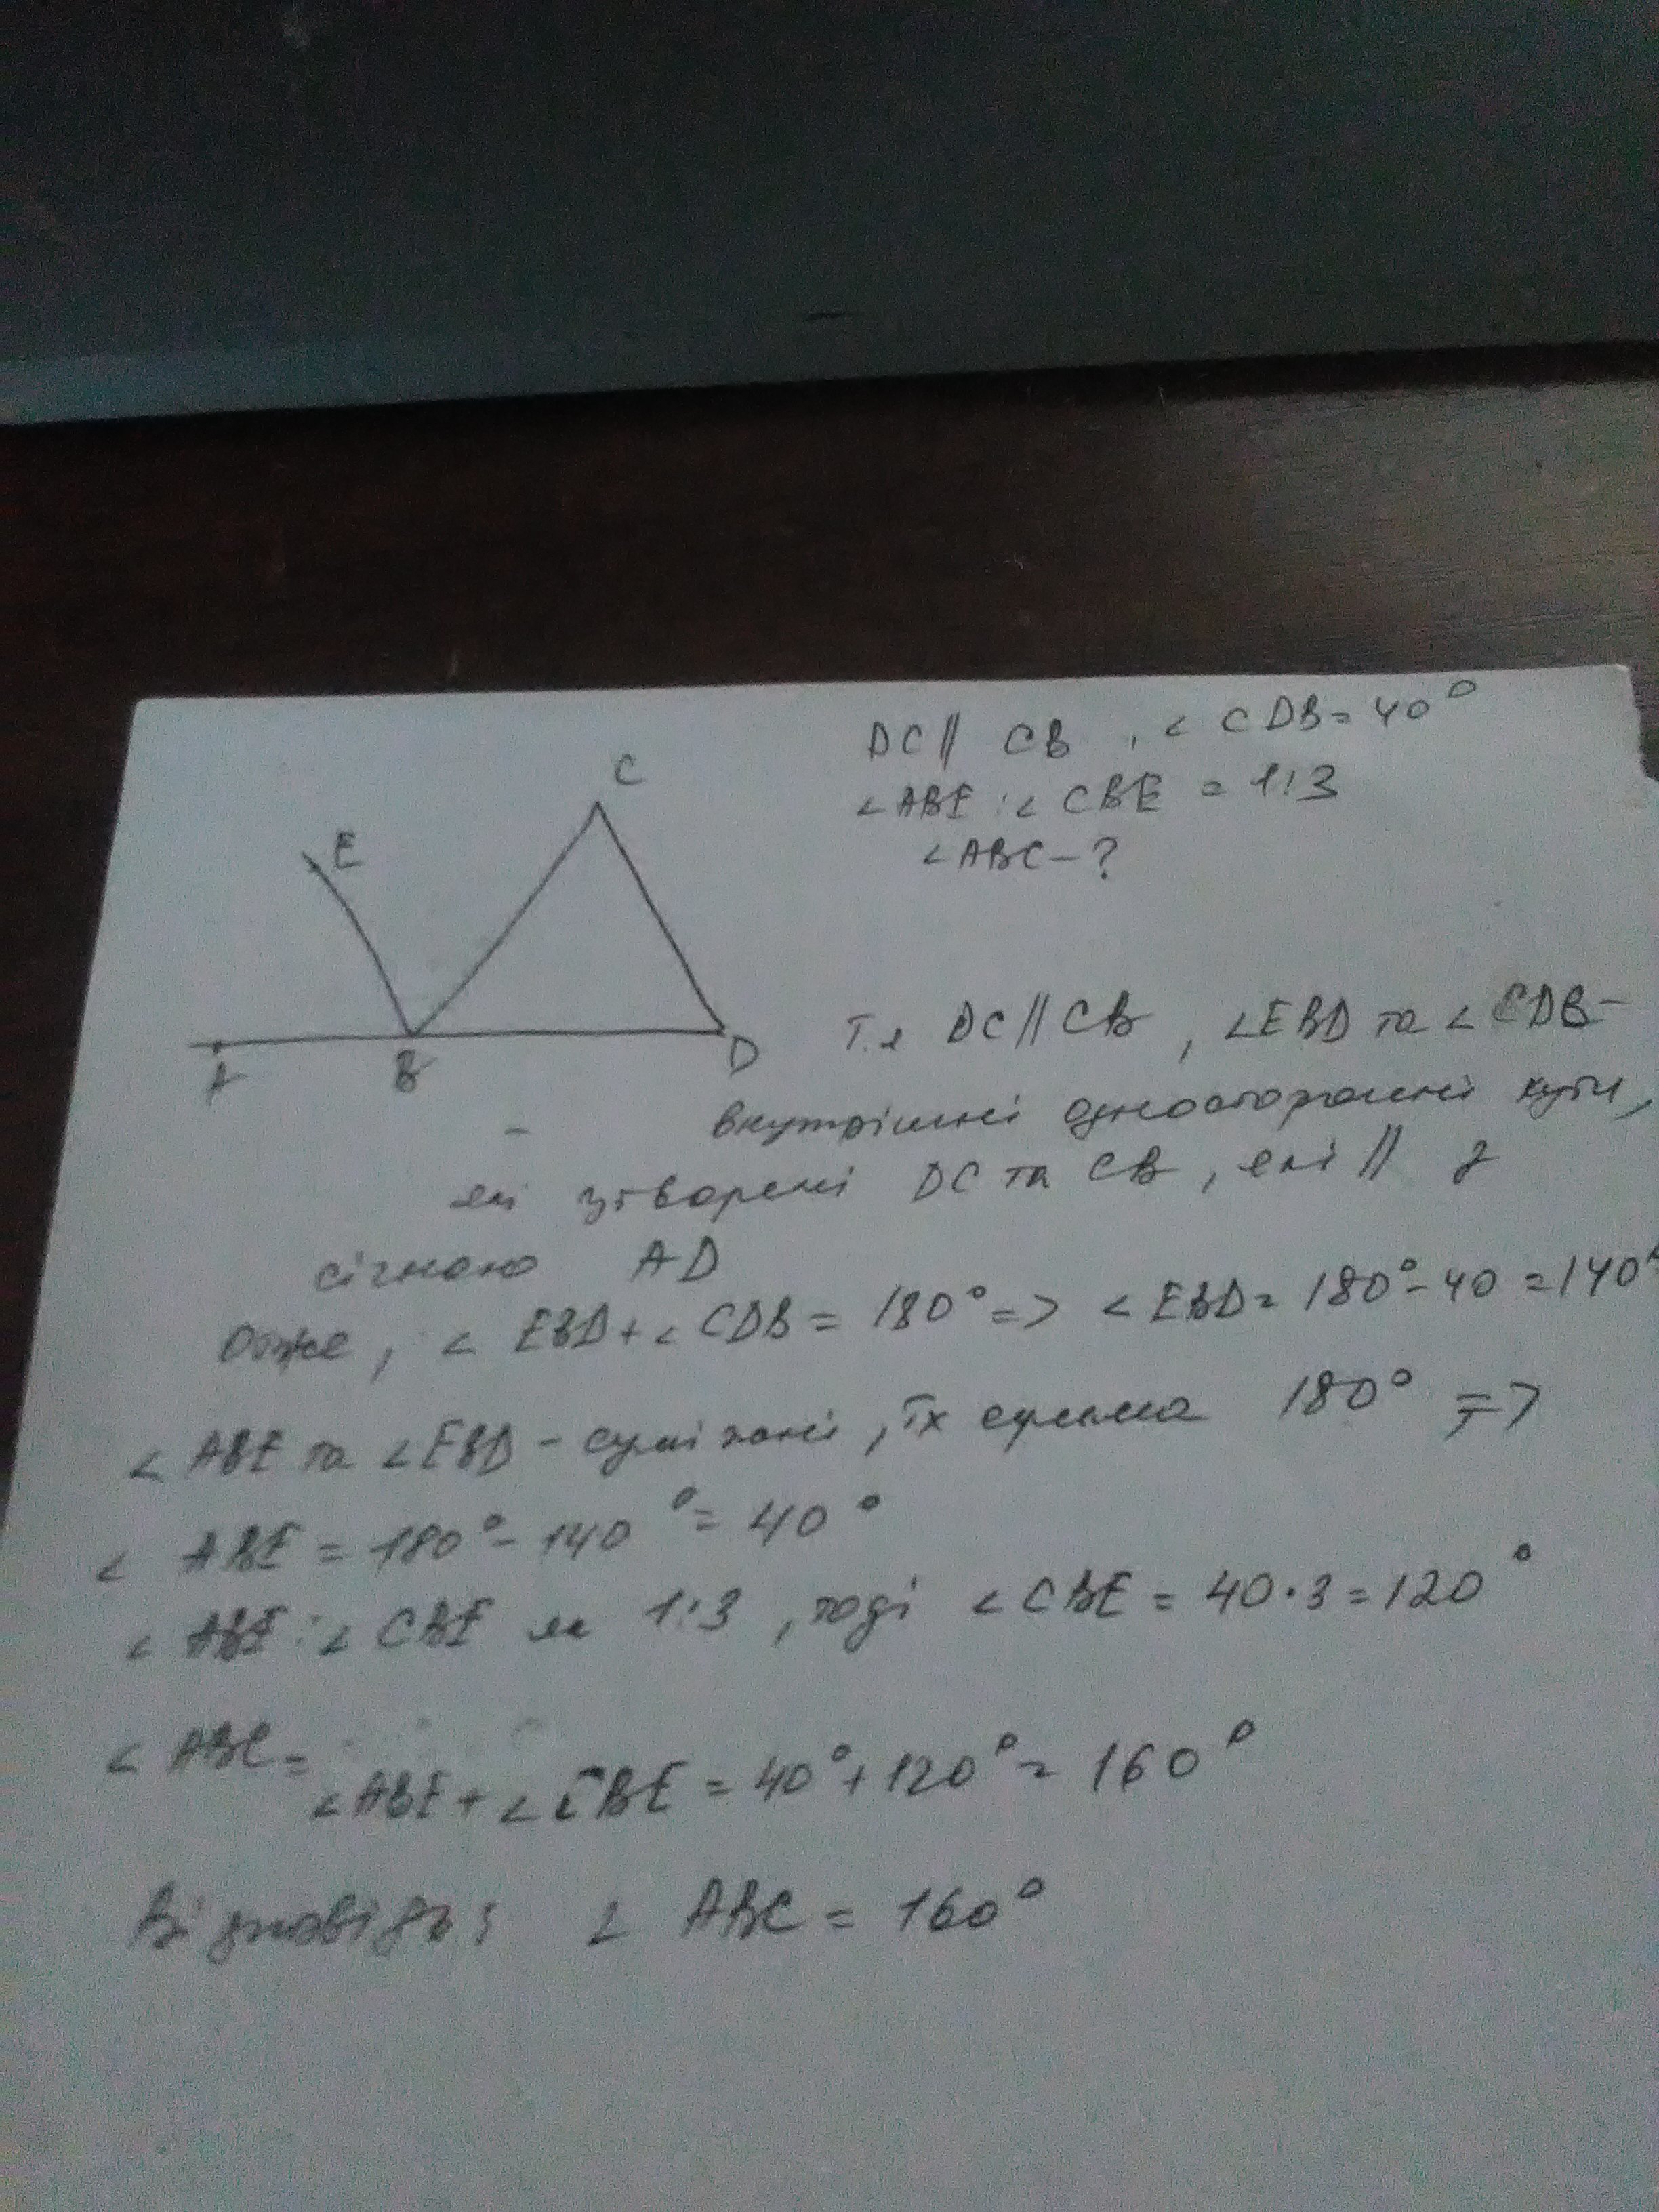 C
E
A
B
D
DC || CB , ∠ CDB = 40°
∠ABE : ∠ CBE = 1:3
∠ABC - ?
Т.я DC || CB , ∠EBD та ∠ CDB -
внутрішні односторонні кути,
які утворені DC та CB , які || з
січною AD
Отже, ∠ EBD + ∠ CDB = 180° => ∠ EBD = 180° - 40 = 140°
∠ ABE та ∠EBD - суміжні , їх сумма 180° =>
∠ ABE = 180° - 140° = 40°
∠ ABE : ∠ CBE як 1:3 , тоді ∠ CBE = 40 · 3 = 120°
∠ ABC =
∠ABE + ∠ CBE = 40° + 120° = 160°
Відповідь: ∠ ABC = 160°